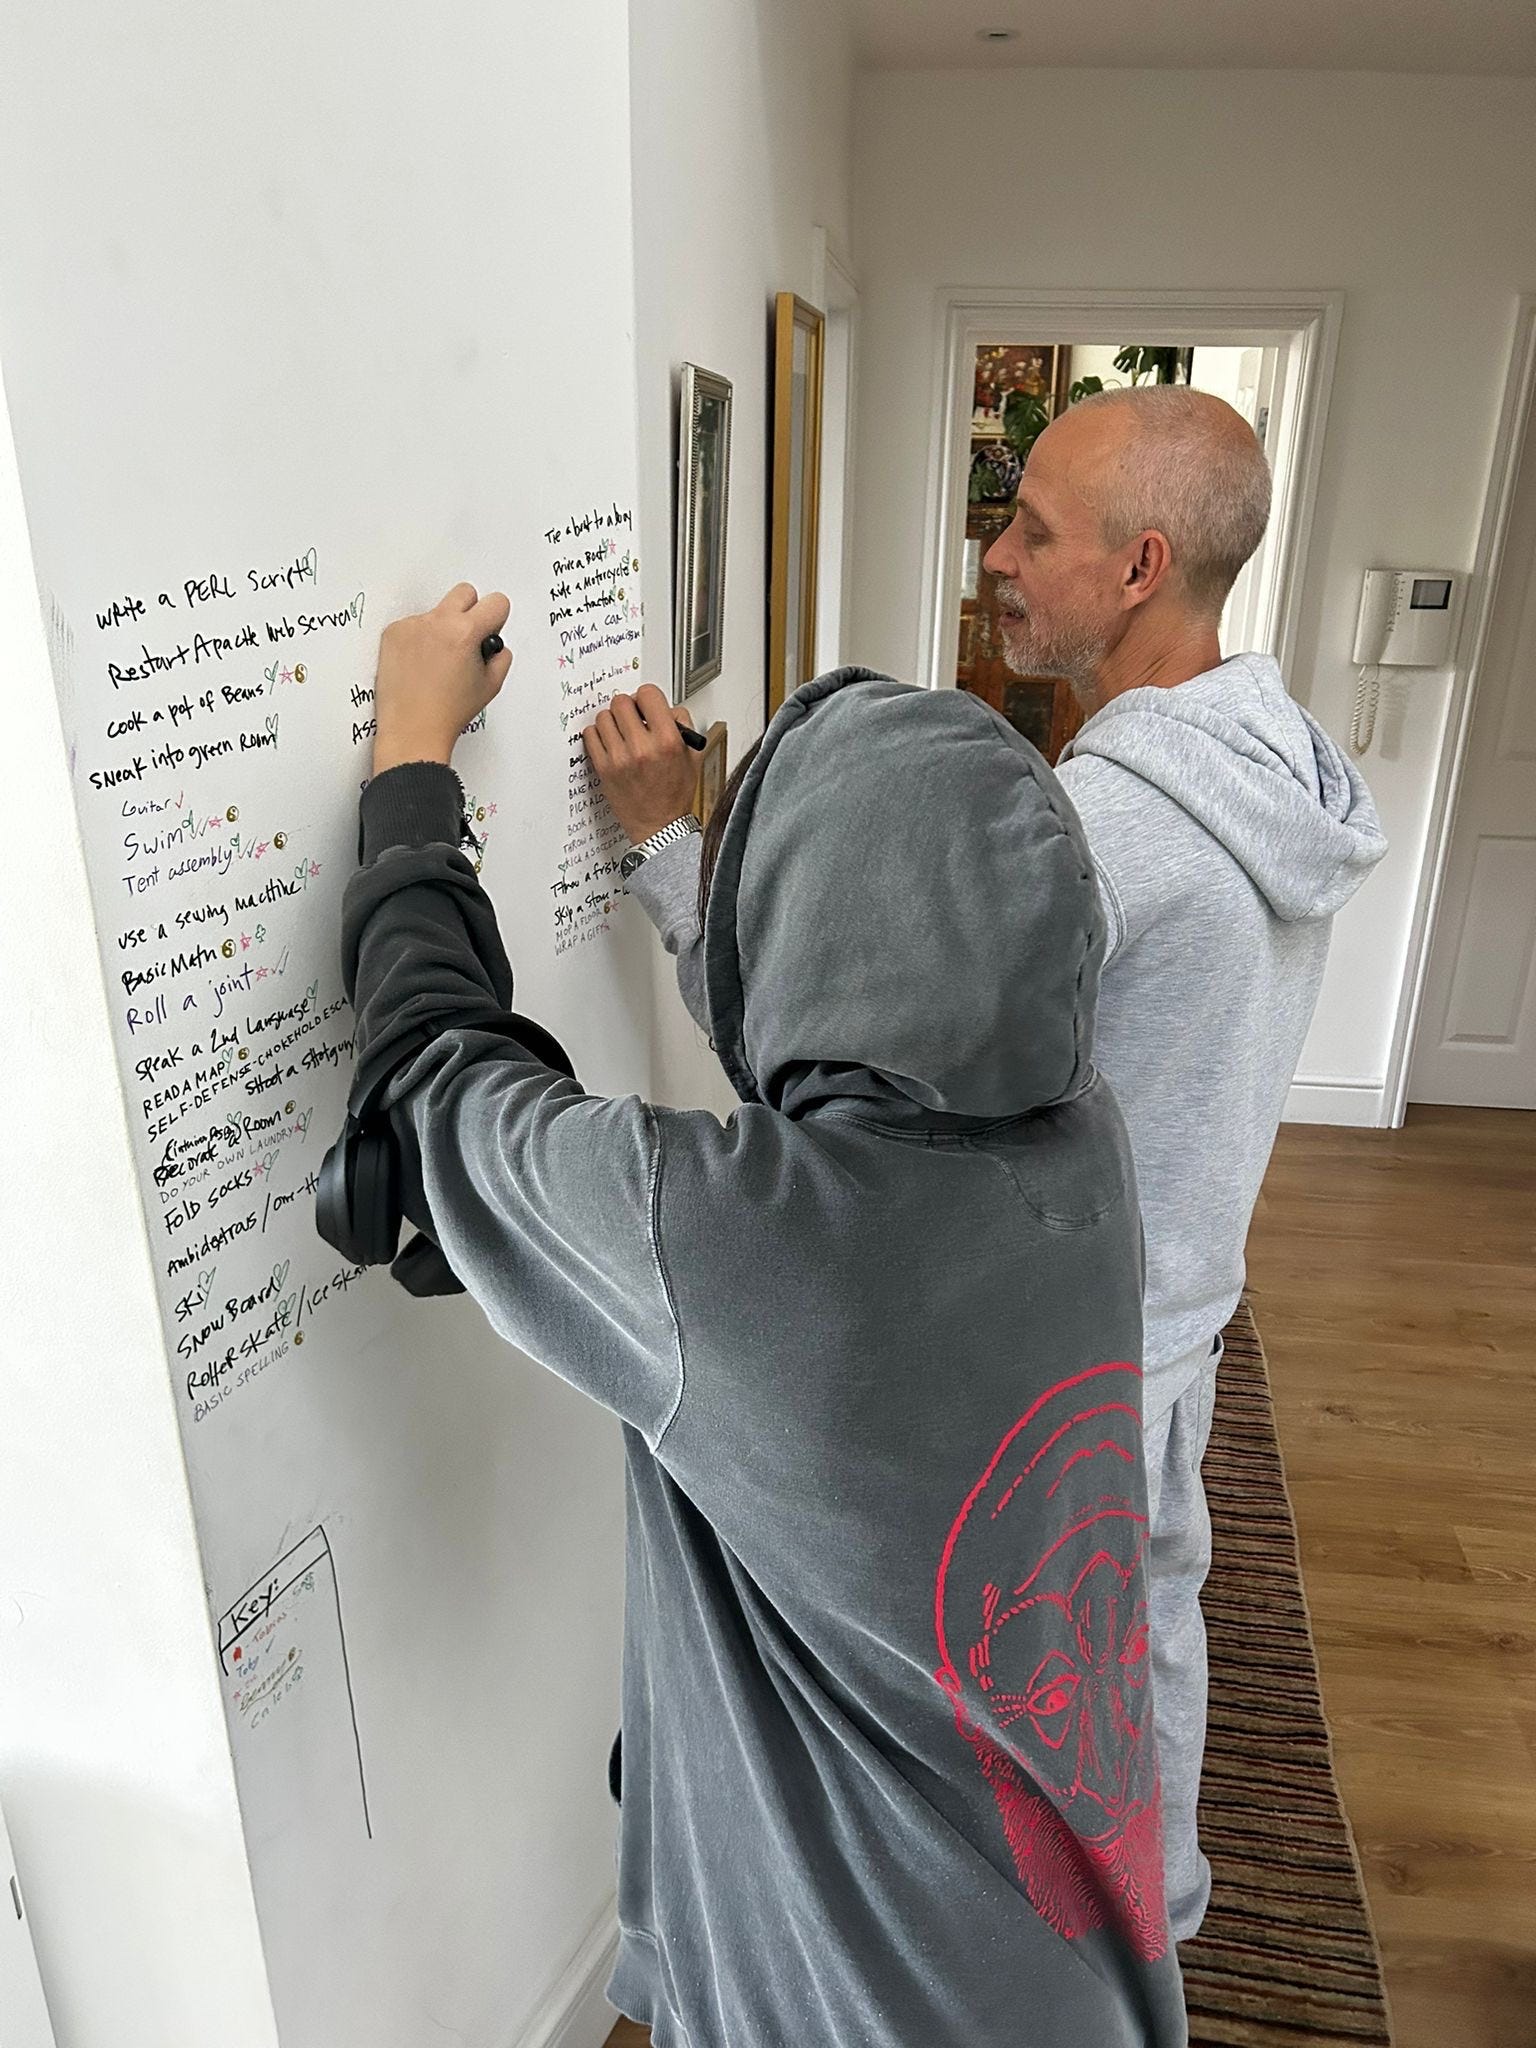 write a PERL Script
Restart Apache Web Server
cook a pot of Beans
Sneak into green Room
Guitar
Swim
Tent assembly
use a sewing machine
Basic Math
Roll a joint
speak a 2nd Language
READ A MAP
SELF-DEFENSE-CHOKEHOLD ESCA
Shoot a Shotgun
Decorate a Room
DO YOUR OWN LAUNDRY
FOLD SOCKS
Ambidextrous / one-H
SKi
SNOW BOARD
ROllER SKATE / ICE SKAT
BASIC SPELLING
Key:
Tobias
Toby
Caleb
Ass
Tie a boat to a buoy
Drive a Boat
Ride a Motorcycle
Drive a tractor
Drive a car
Manual transmission
Keep a plant alive
Start a fire
ORGAN
BAKE A C
PICK A LO
BOOK A FLIG
THROW A FOOTBA
KICK A SOCCER
Throw a frisb
Skip a Stone
MOP A FLOOR
WRAP A GIFT